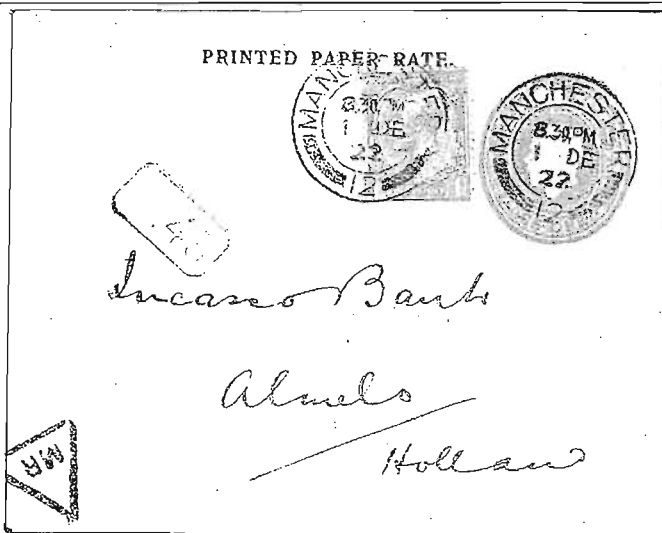 PRINTED PAPER RATE.
MANCHESTER
8.30PM
1 DE
22
12
MANCHESTER
8.30PM
1 DE
22
12
Incasso Bank
Almelo
Holland